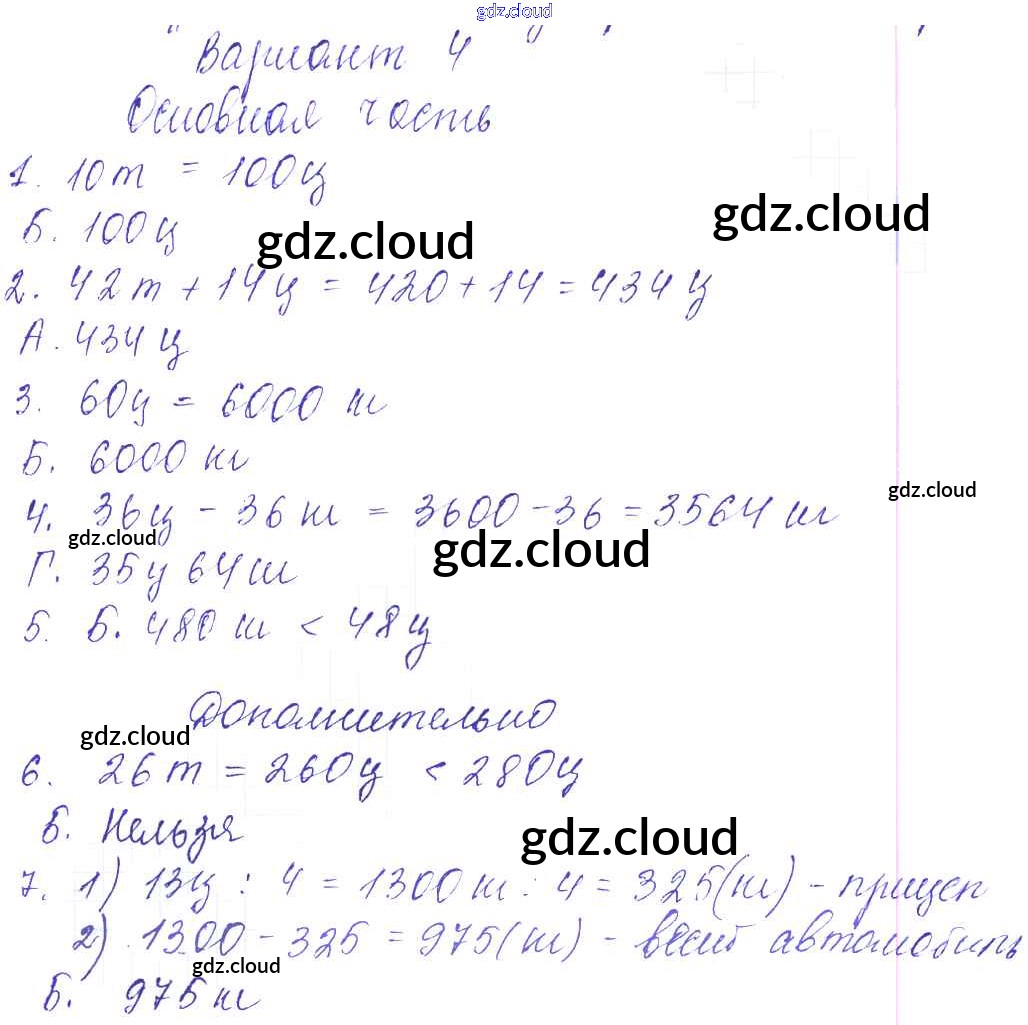 gdz.cloud
Вариант 4
Основная часть
1. 10т = 100ц
Б. 100ц
gdz.cloud
gdz.cloud
2. 42т + 14ц = 420 + 14 = 434 ц
А. 434 ц
3. 60ц = 6000 кг
Б. 6000 кг
gdz.cloud
4. 36ц - 36 кг = 3600 - 36 = 3564 кг
gdz.cloud
gdz.cloud
Г. 35ц 64 кг
5. Б. 480 кг < 48ц
Дополнительно
gdz.cloud
6. 26т = 260ц < 280ц
Б. Нельзя
gdz.cloud
7. 1) 13ц : 4 = 1300 кг : 4 = 325(кг) - прицеп
2) 1300 - 325 = 975(кг) - весит автомобиль
gdz.cloud
Б. 975 кг